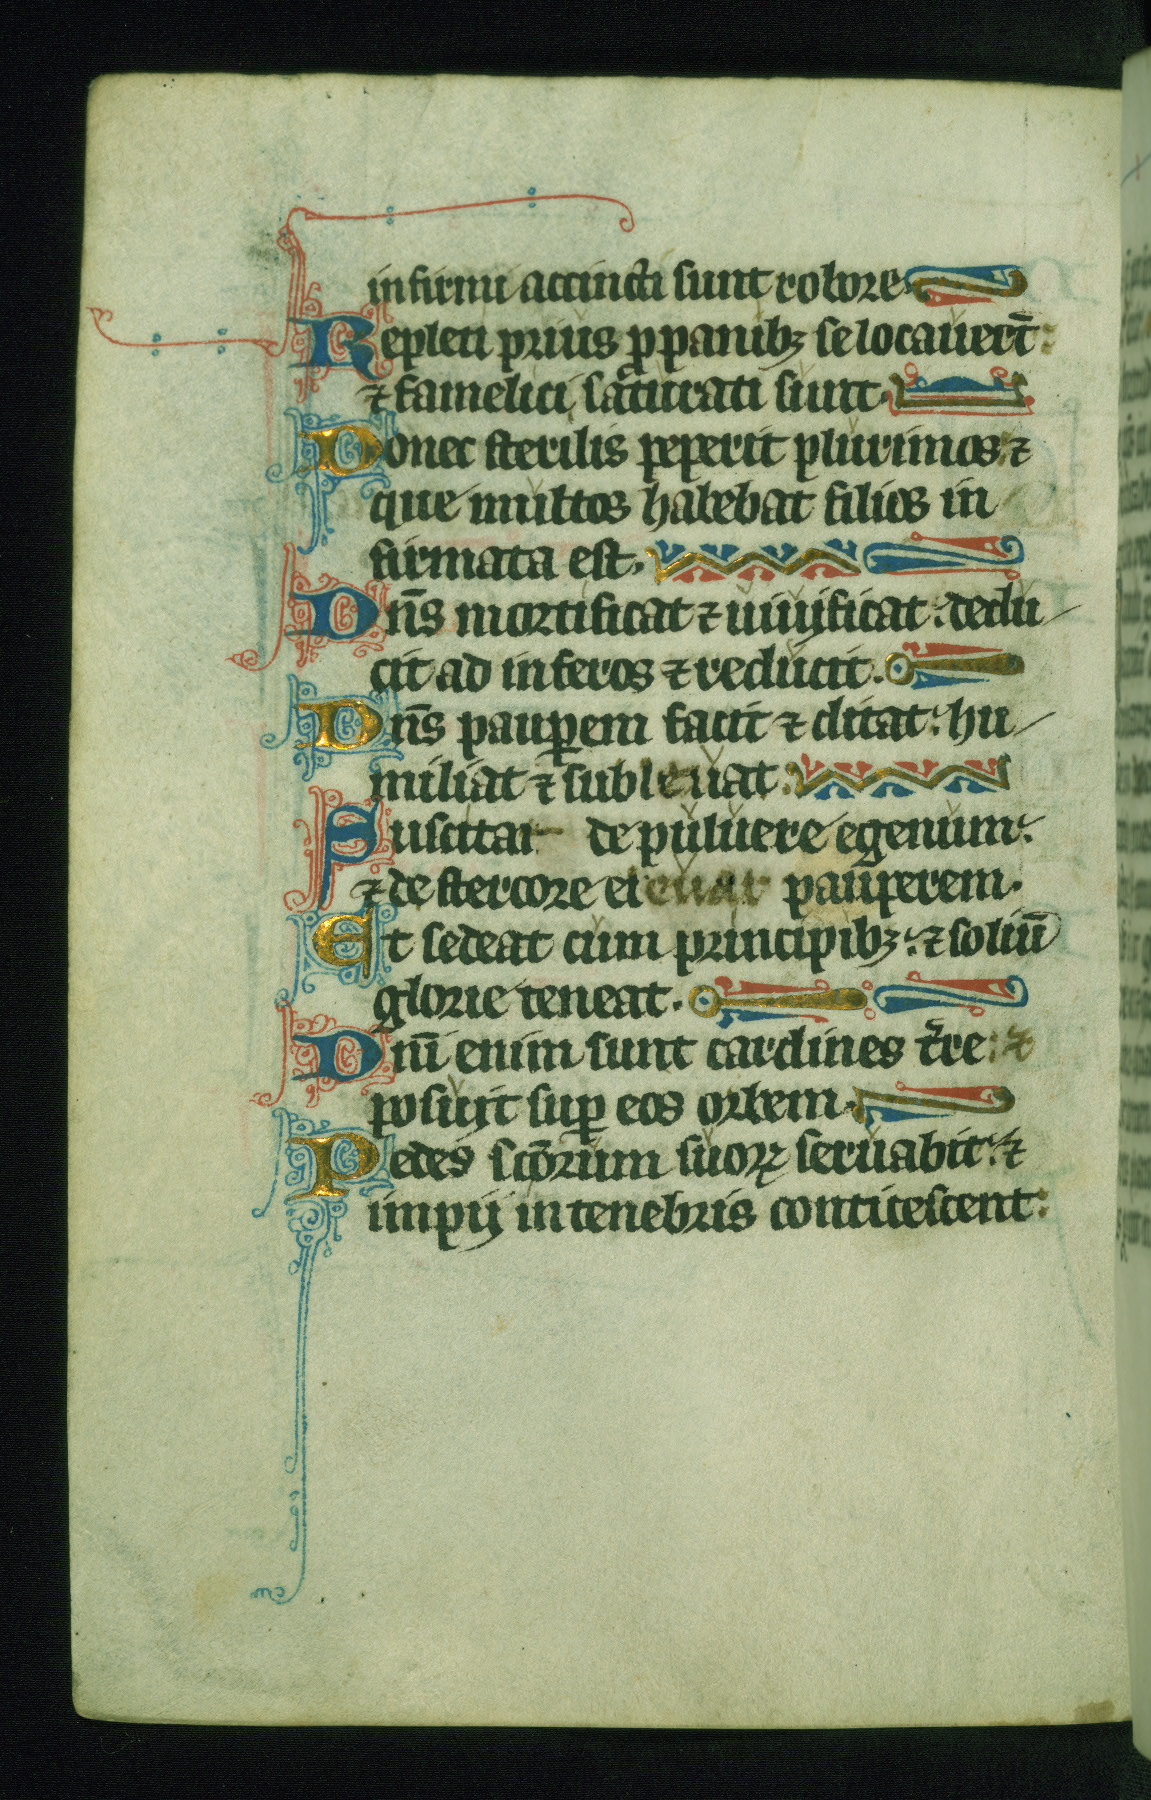 infirmi accincti sunt robore
Repleti prius p panibꝫ se locauer̄t:
⁊ famelici saturati sunt.
Donec sterilis peperit plurimos: ⁊
que multos habebat filios in
firmata est.
Dn̄s mortificat ⁊ uiuificat: dedu
cit ad inferos ⁊ reducit.
Dn̄s paup̄em facit ⁊ ditat: hu
miliat ⁊ subleuat.
Suscitat de puluere egenum:
⁊ de stercore eleuat pauperem.
Et sedeat cum principibꝫ: ⁊ soliū
glorie teneat.
Dn̄i enim sunt cardines t̄re: ⁊
posuit sup̄ eos orbem.
Pedes sc̄orum suoꝝ seruabit: ⁊
impij in tenebris conticescent: